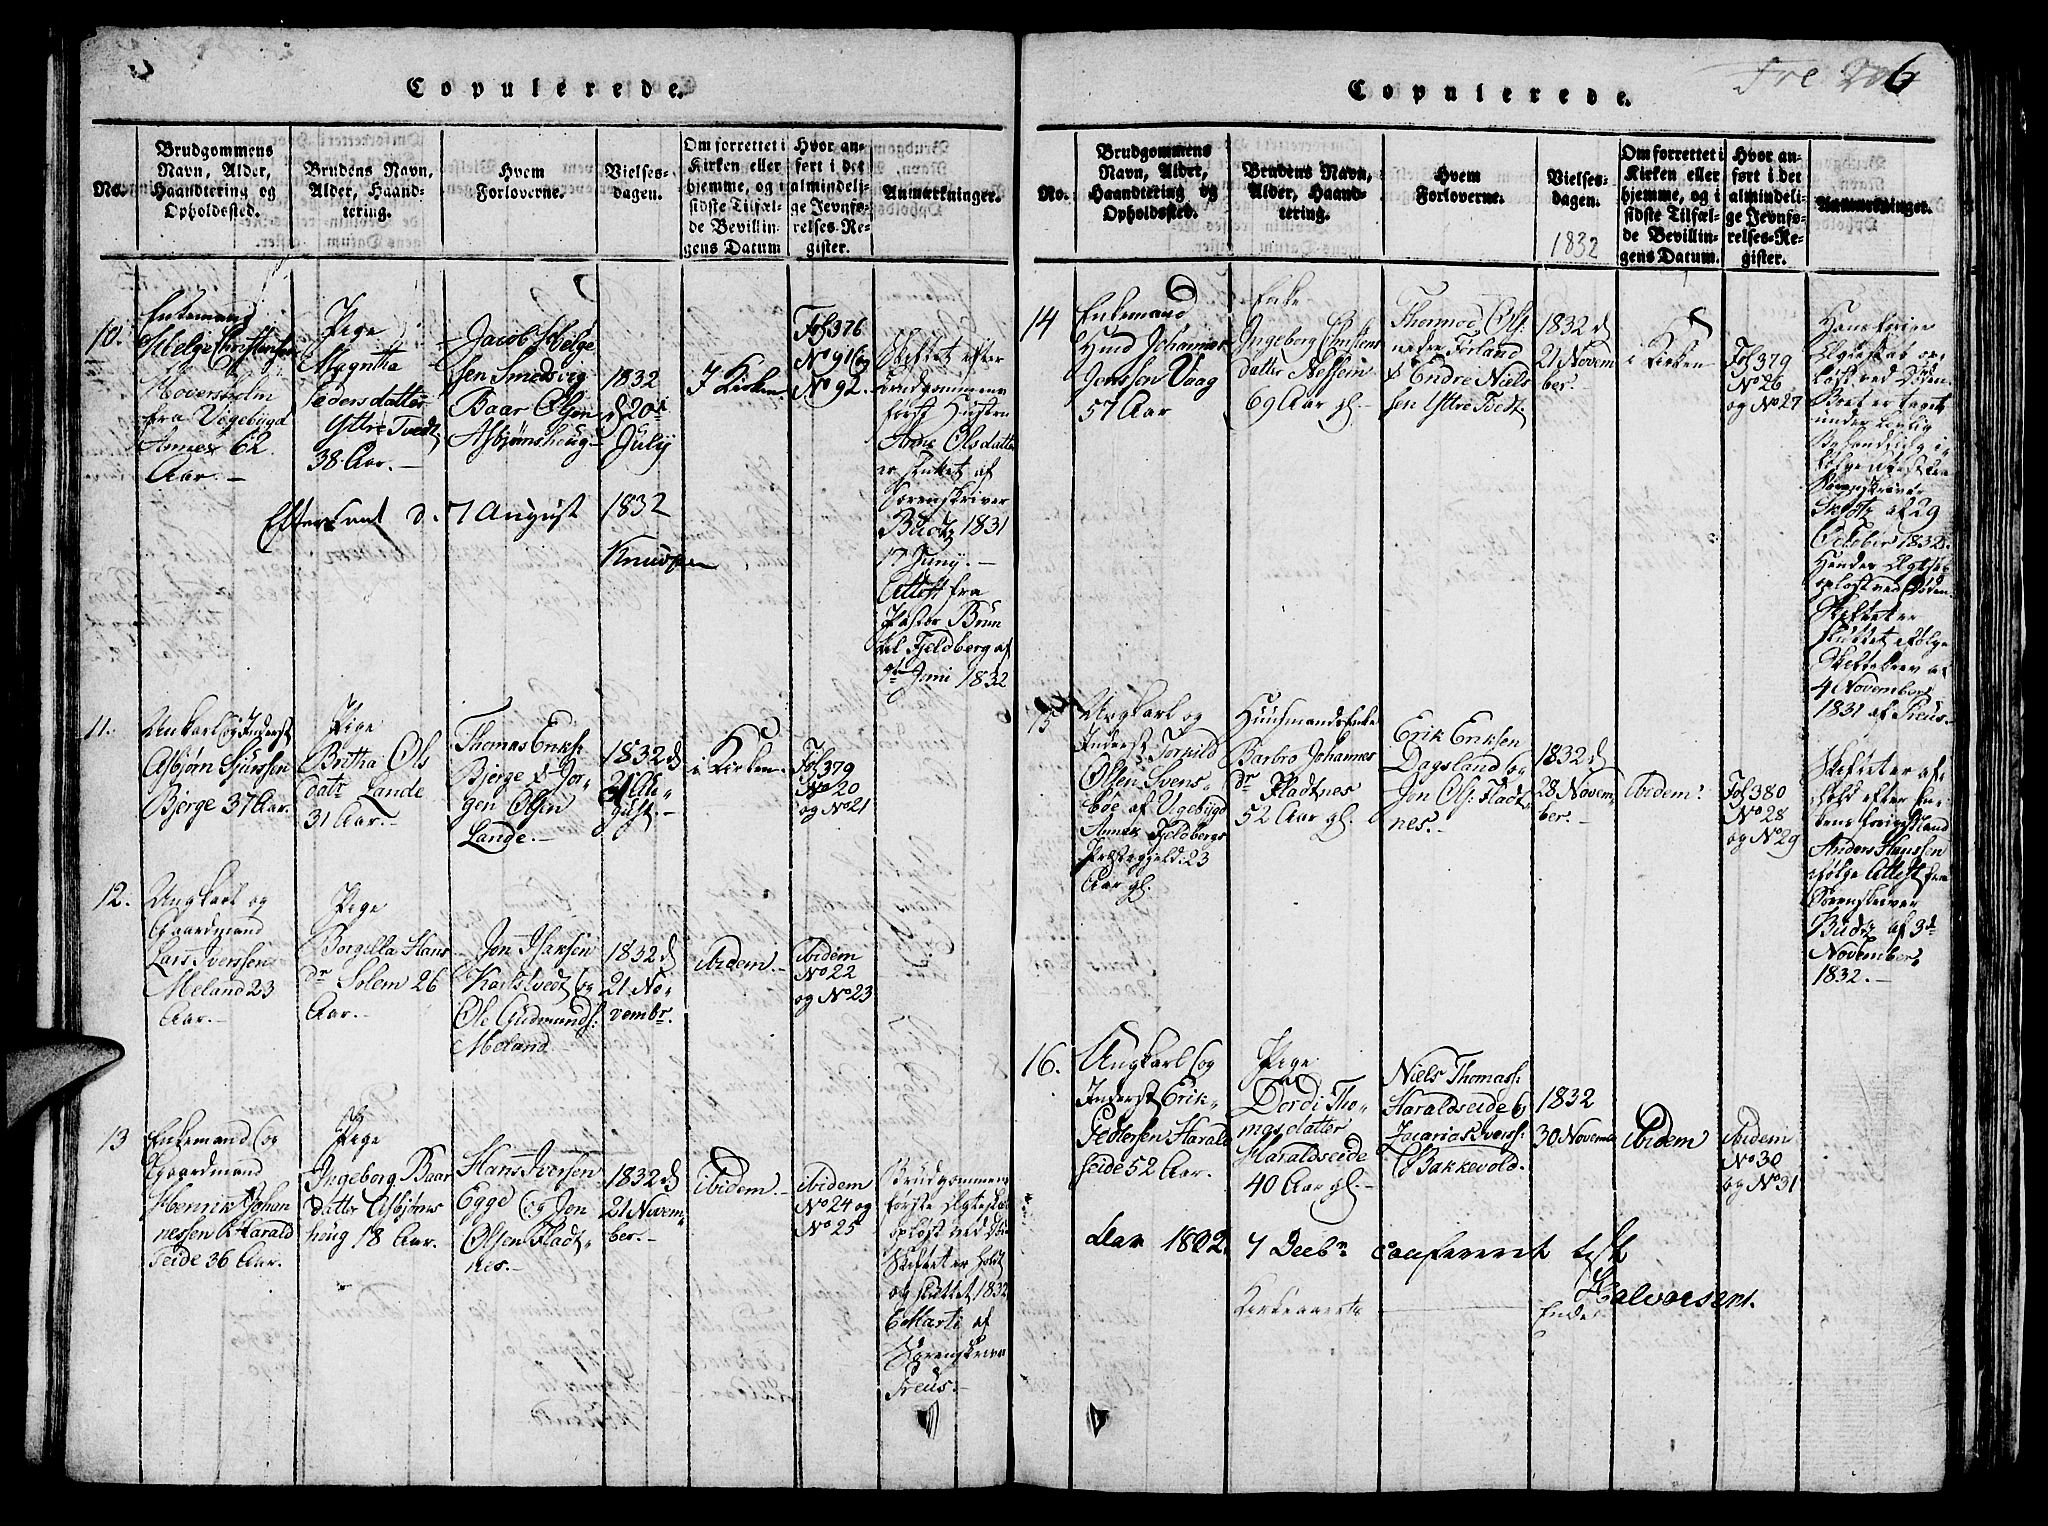 Copulerede.
No.
Brudgommens
Navn, Alder,
Haandtering og
Opholdssted.
Brudens Navn,
Alder, Haand-
tering.
Hvem
Forloverne.
Vielses-
dagen.
Om forrettet i
Kirken eller
hjemme, og i
sidste Tilfæl-
de Bevillin-
gens Datum
Hvor an-
ført i det
almindeli-
ge Jevnfø-
relses-Re-
gister.
Anmærkninger.
10.
Enkemand
Helge Christensen
fra Vegebøgd
Annex 62
Aar.
Pige
Magntha
Pedersdatter
Yttre Tvedt
38 Aar.
Jacob Helge
sen Smedsvig
Baar Olsen
Asbjønshoug
1832
d 20de
July
I Kirken
Fol 376
No 91 og
No 92.
Skiftet efter
Brudgommens
først Hustru
Anne Olsdatter
er sluttet af
Sorenskriver
Budtz 1831
17 Juny.
Attest fra
Pastor Brun
til Fjeldberg af
Juni 1832
Efterseet d. 7 August 1832
Knudsen
11.
Unkarl og Inderst
Asbjørn Sjurssen
Bjerge 37 Aar.
Pige
Britha Ols
datr Lande
31 Aar.
Thomas Eriks:
Bjerge & Jør-
gen Olsen
Lande.
1832 d
21 Au-
gust.
i Kirken
Fol 379
No 20
og No 21
12.
Ungkarl og
Gaardmand
Lars Iverssen
Meland 23
Aar.
Pige
Borgilla Hans
dr Solem 26
Aar.
Jon Isaksen
Karlstvedt og
Ole Gudmunds:
Meland
1832 d
21 No-
vembr.
ibidem.
ibidem
No 22
og No 23
13
Enkemand og
Gaardmand
Henrik Johan
nessen Harald
seide 36 Aar.
Pige
Ingeborg Baar
datter Asbjøns
houg 18 Aar.
Hans Iversen
Egge og Jon
Olsen Fladt-
nes.
1832 d
21 Novem-
ber.
ibidem.
ibidem
No 24 og
No 25
Brudgommens
første Ægteskab
opløst ved Dø
Skiftet er holdt
og sluttet 1832
6 Marti af
Sorenskriver
Preus.
Copulerede.
6
No.
Brudgommens
Navn, Alder,
Haandtering og
Opholdssted.
Brudens Navn,
Alder, Haand-
tering.
Hvem
Forloverne.
Vielses-
dagen.
1832
Om forrettet i
Kirken eller
hjemme, og i
sidste Tilfæl-
de Bevillin-
gens Datum.
Hvor an-
ført i det
almindeli-
ge Jevnfø-
relses-Re-
gister.
Anmærkninger.
14
Enkemand
Johannes
Jonssen Vaag
57 Aar
Enke
Ingeborg Christens
datter Nessein
69 Aar gl.
Thormod Ols:
nedre Førland
& Endre Niels
sen Yttre Tvedt
1832 d
21 Novem
ber.
i Kirken
Fol 379
No 26
og No 27
Hans forrige
Ægteskab op-
løst ved Døden
Boet er taget
under lovlig
Behandling i-
følge Attest fra
Sorenskriver
af 29
October 1832.
Hendes Ægtesk
opløst ved Døden
Skiftet er
sluttet ifølge
Skiftebrev af
4 November
1831 af Preus.
15
Ungkarl og
Inderst Torkild
Olsen Svens-
boe af Vegebøgd
Annex Fjeldbergs
Præstegjeld 23
Aar gl.
Huusmands Enke
Barbro Johannes
dr Fladtnes
52 Aar gl.
Erik Eriksen
Dagsland og
Jon Ols: Fladt-
nes.
1832 d
28 Novem-
ber.
ibidem.
Fol 380
No 28
og No 29
Skiftet er af-
hold efter En-
kens forige Mand
Anders Hanssen
ifølge Attest fra
Sorenskriver
Budtz af 3de
November
1832.
16.
Ungkarl og
Inderst Erik
Pedersen Harald
seide 52 Aar.
Pige
Dordi Tho-
masdatter
Haraldseide
40 Aar gl.
Niels Thomass:
Haraldseide og
Zacarias Iverss:
Bakkevold.
1832
30 Novemb
ibidem
ibidem
No 30
og No 31
den 1802. 7 Decbr confereret
Halvorsen.